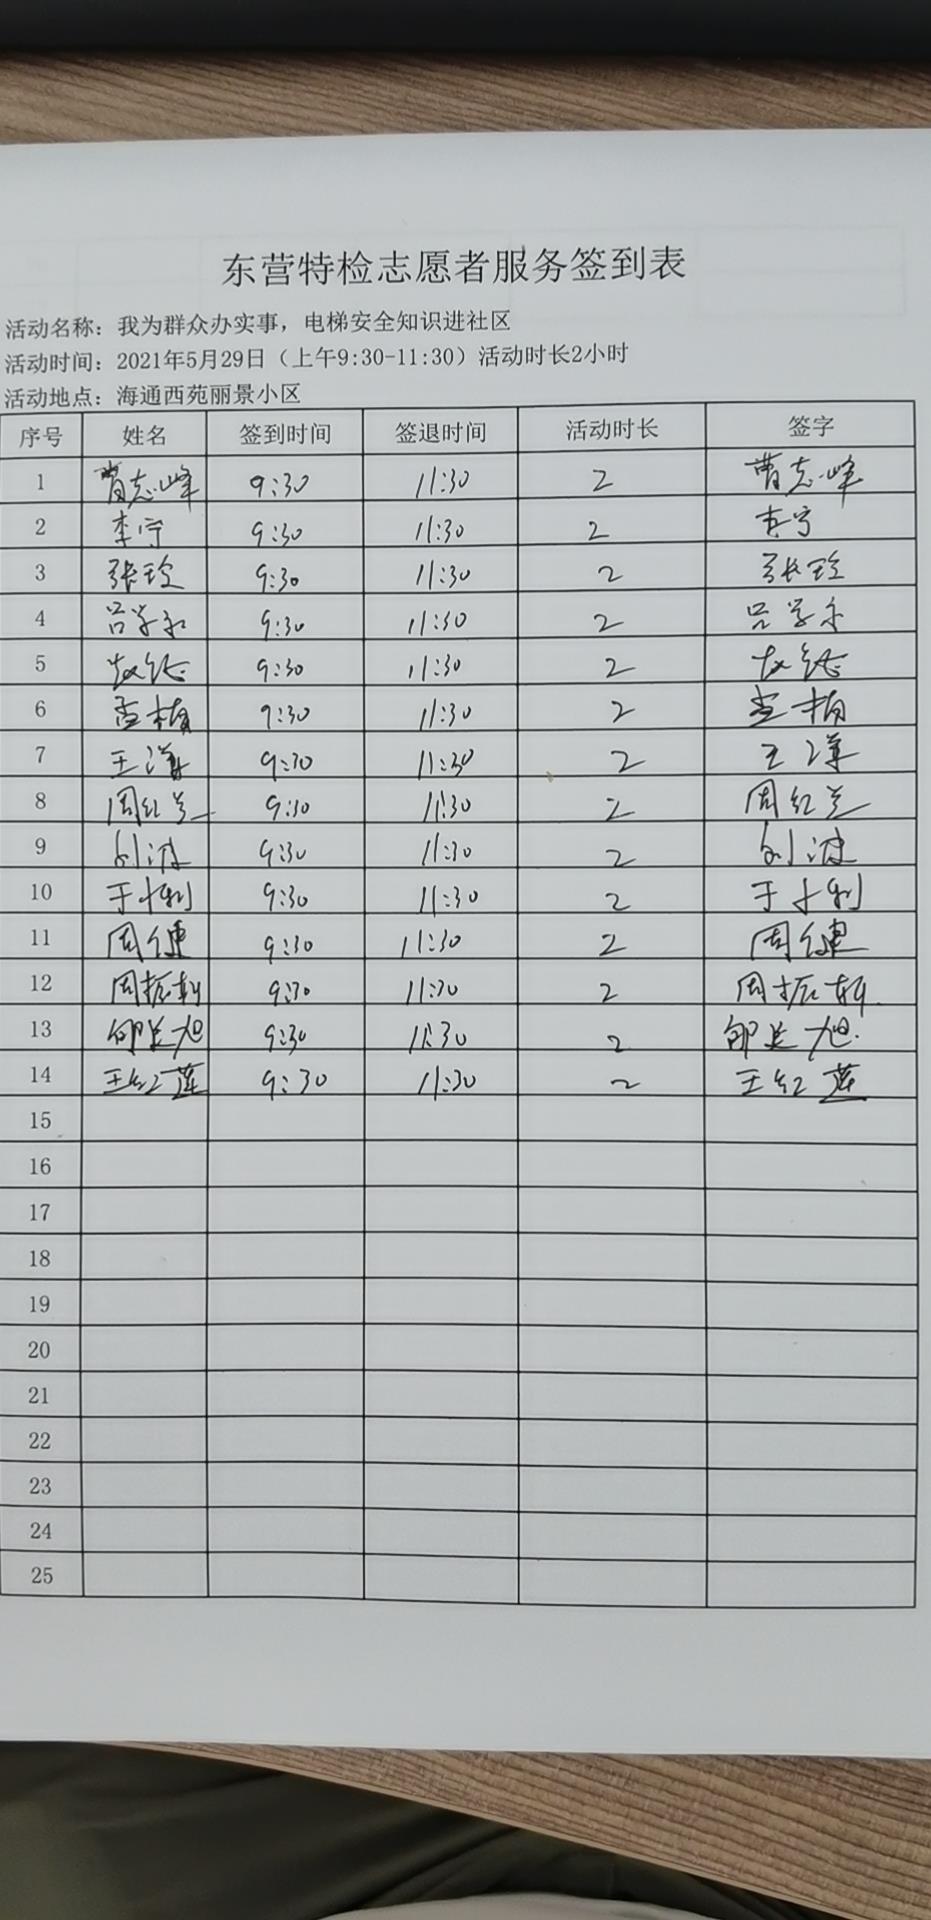 东营特检志愿者服务签到表
活动名称：我为群众办实事，电梯安全知识进社区
活动时间：2021年5月29日（上午9:30-11:30）活动时长2小时
活动地点：海通西苑丽景小区
序号 姓名 签到时间 签退时间 活动时长 签字
1 曹志峰 9:30 11:30 2 曹志峰
2 李宁 9:30 11:30 2 李宁
3 张玲 9:30 11:30 2 张玲
4 吕学永 9:30 11:30 2 吕学永
5 9:30 11:30 2
6 孟楠 9:30 11:30 2 孟楠
7 王 9:30 11:30 2 王
8 周红兰 9:30 11:30 2 周红兰
9 刘波 9:30 11:30 2 刘波
10 于 利 9:30 11:30 2 于 利
11 周健 9:30 11:30 2 周健
12 周振 9:30 11:30 2 周振
13 旭 9:30 11:30 2 旭
14 王红莲 9:30 11:30 2 王红莲
15
16
17
18
19
20
21
22
23
24
25